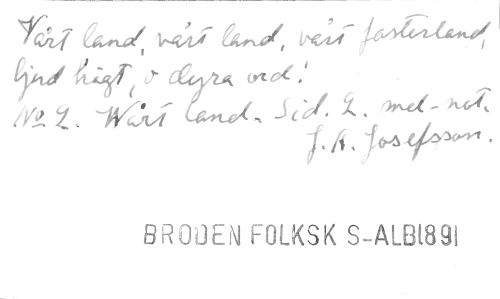 Vårt land, vårt land, vårt fosterland,
ljud högt, o dyra ord!
No 2. Wårt land. Sid. 2. mel-not.
J. A. Josefsson.
BRODEN FOLKSK S-ALB1891